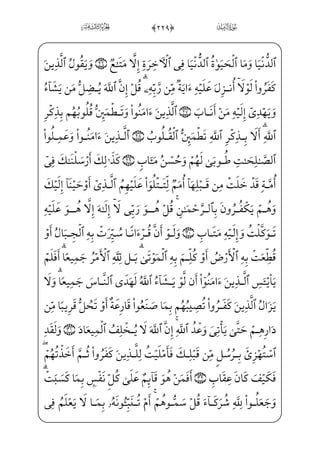 ﴿٢٢٩﴾
ٱلدُّنْيَا وَمَا ٱلْحَيَوٰةُ ٱلدُّنْيَا فِى ٱلْـَٔاخِرَةِ إِلَّا مَتَٰعٌ ۝ وَيَقُولُ ٱلَّذِينَ
كَفَرُوا۟ لَوْلَآ أُنزِلَ عَلَيْهِ ءَايَةٌ مِّن رَّبِّهِۦ ۗ قُلْ إِنَّ ٱللَّهَ يُضِلُّ مَن يَشَآءُ
وَيَهْدِىٓ إِلَيْهِ مَنْ أَنَابَ ۝ ٱلَّذِينَ ءَامَنُوا۟ وَتَطْمَئِنُّ قُلُوبُهُم بِذِكْرِ
ٱللَّهِ ۗ أَلَا بِذِكْرِ ٱللَّهِ تَطْمَئِنُّ ٱلْقُلُوبُ ۝ ٱلَّذِينَ ءَامَنُوا۟ وَعَمِلُوا۟
ٱلصَّٰلِحَٰتِ طُوبَىٰ لَهُمْ وَحُسْنُ مَـَٔابٍ ۝ كَذَٰلِكَ أَرْسَلْنَٰكَ فِىٓ
أُمَّةٍ قَدْ خَلَتْ مِن قَبْلِهَآ أُمَمٌ لِّتَتْلُوَا۟ عَلَيْهِمُ ٱلَّذِىٓ أَوْحَيْنَآ إِلَيْكَ
وَهُمْ يَكْفُرُونَ بِٱلرَّحْمَٰنِ ۚ قُلْ هُوَ رَبِّى لَآ إِلَٰهَ إِلَّا هُوَ عَلَيْهِ
تَوَكَّلْتُ وَإِلَيْهِ مَتَابِ ۝ وَلَوْ أَنَّ قُرْءَانًا سُيِّرَتْ بِهِ ٱلْجِبَالُ أَوْ
قُطِّعَتْ بِهِ ٱلْأَرْضُ أَوْ كُلِّمَ بِهِ ٱلْمَوْتَىٰ ۗ بَل لِّلَّهِ ٱلْأَمْرُ جَمِيعًا ۗ أَفَلَمْ
يَا۟يْـَٔسِ ٱلَّذِينَ ءَامَنُوٓا۟ أَن لَّوْ يَشَآءُ ٱللَّهُ لَهَدَى ٱلنَّاسَ جَمِيعًا ۗ وَلَا
يَزَالُ ٱلَّذِينَ كَفَرُوا۟ تُصِيبُهُم بِمَا صَنَعُوا۟ قَارِعَةٌ أَوْ تَحُلُّ قَرِيبًا مِّن
دَارِهِمْ حَتَّىٰ يَأْتِىَ وَعْدُ ٱللَّهِ ۚ إِنَّ ٱللَّهَ لَا يُخْلِفُ ٱلْمِيعَادَ ۝ وَلَقَدِ
ٱسْتُهْزِئَ بِرُسُلٍ مِّن قَبْلِكَ فَأَمْلَيْتُ لِلَّذِينَ كَفَرُوا۟ ثُمَّ أَخَذْتُهُمْ ۖ
فَكَيْفَ كَانَ عِقَابِ ۝ أَفَمَنْ هُوَ قَآئِمٌ عَلَىٰ كُلِّ نَفْسٍۭ بِمَا كَسَبَتْ ۗ
وَجَعَلُوا۟ لِلَّهِ شُرَكَآءَ قُلْ سَمُّوهُمْ ۚ أَمْ تُنَبِّـُٔونَهُۥ بِمَا لَا يَعْلَمُ فِى